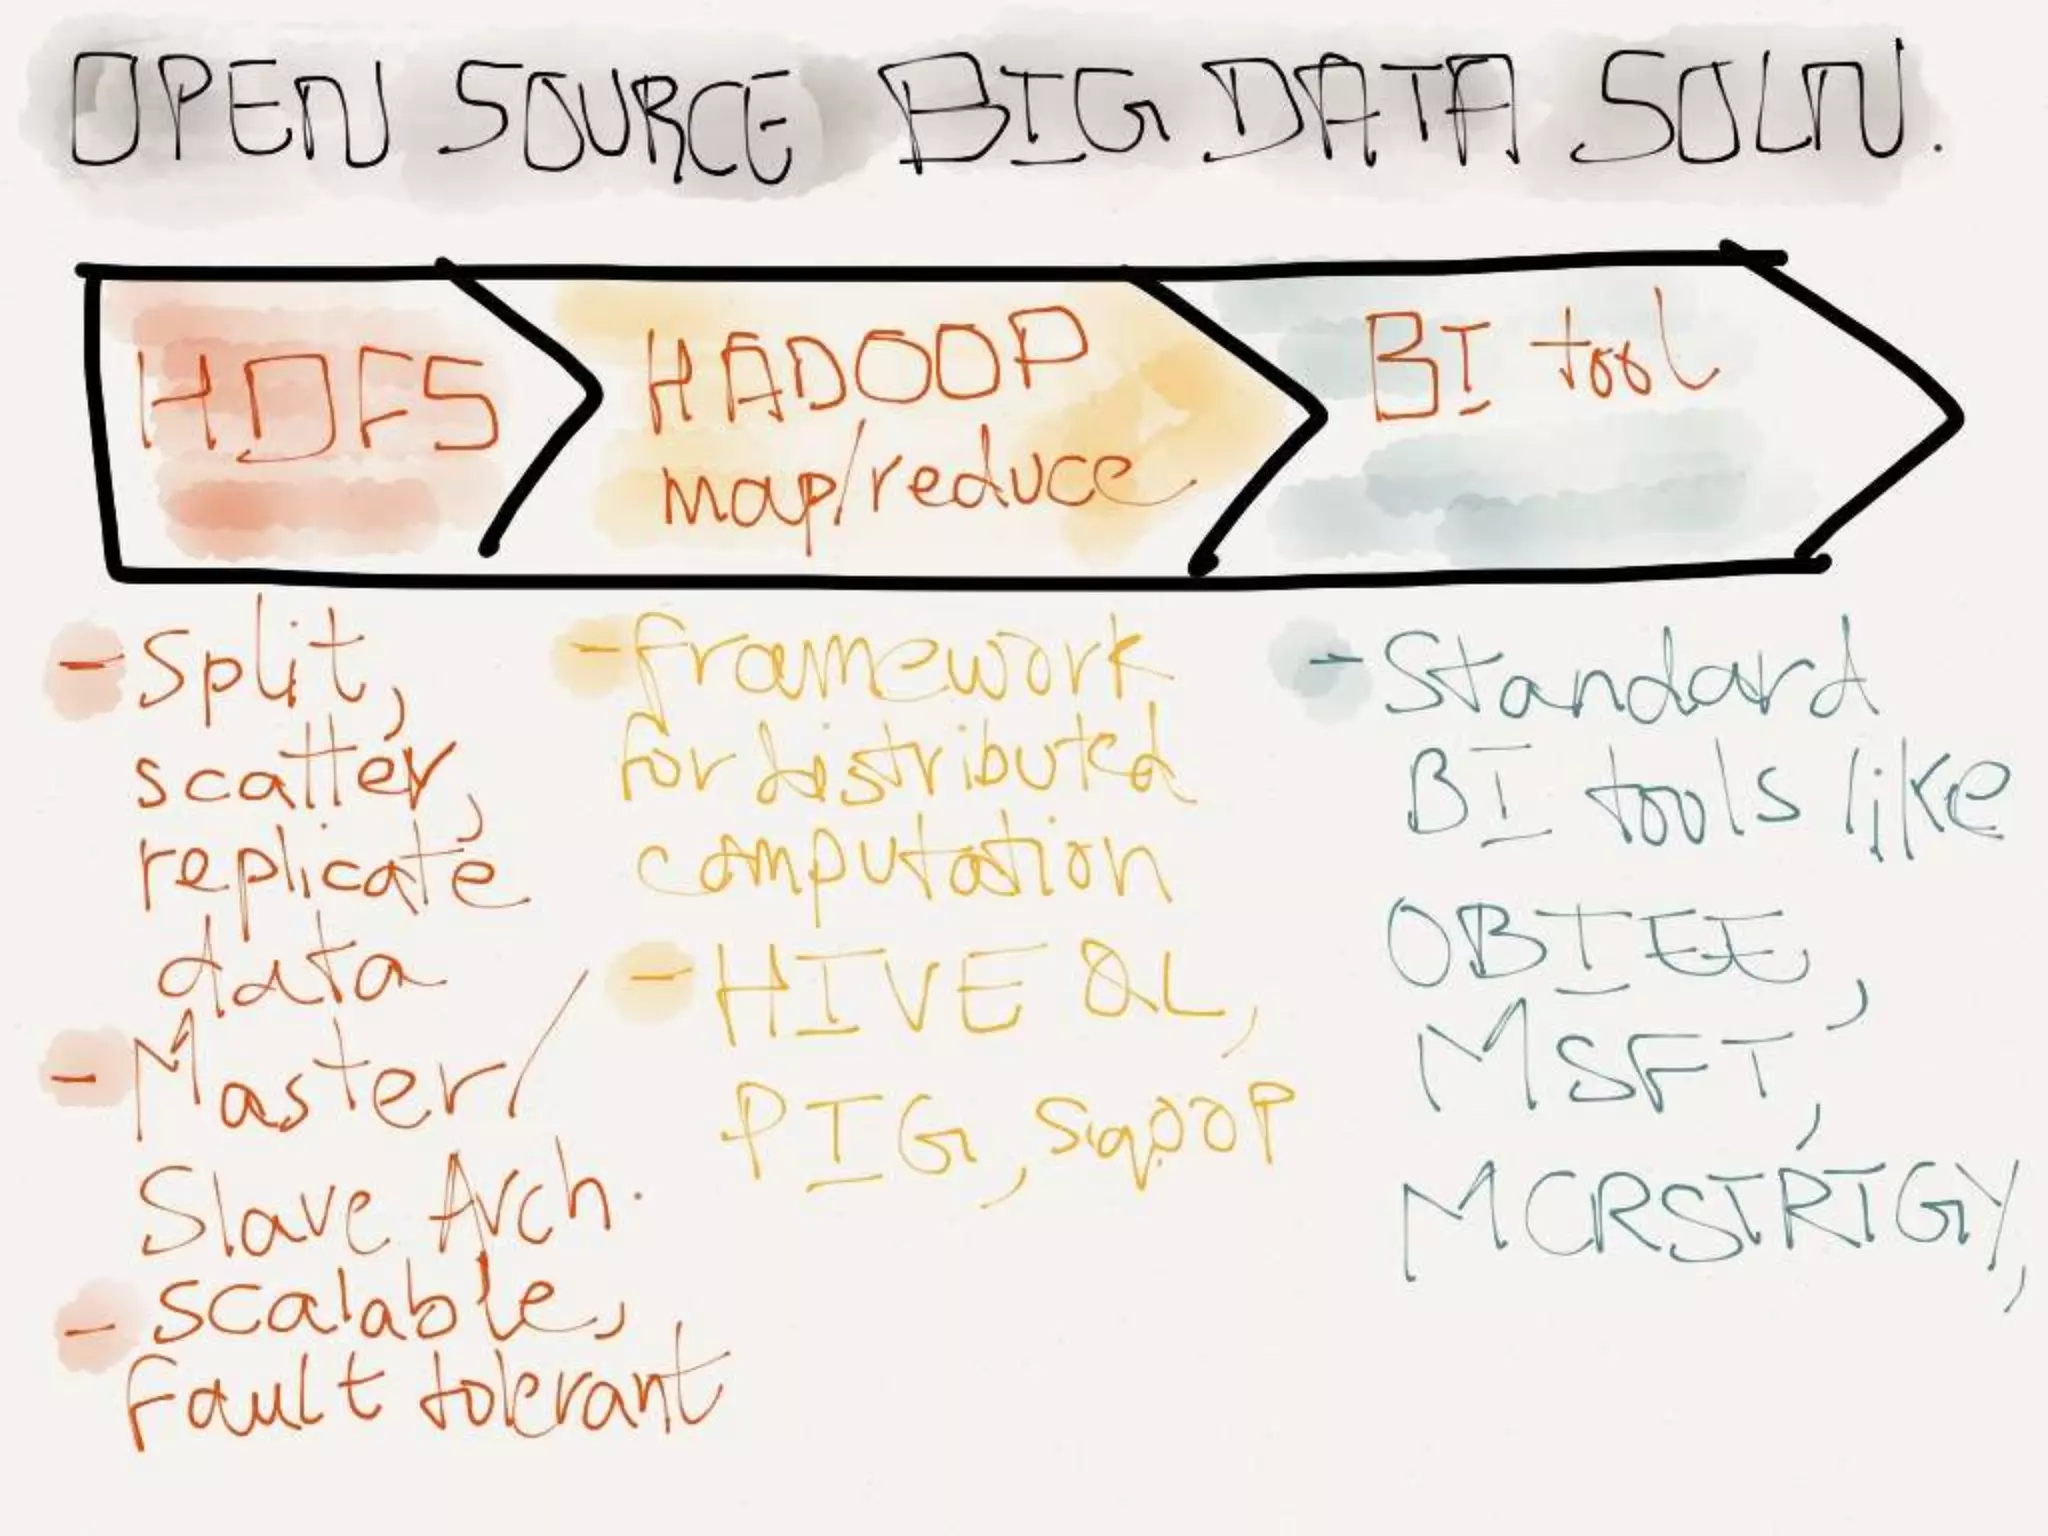 OPEN SOURCE BIG DATA SOLN.
HDFS
HADOOP
map/reduce
BI tool
- Split,
scatter,
replicate
data
- Master/
Slave Arch.
- scalable,
fault tolerant
- framework
for distributed
computation
- HIVE QL,
PIG, SqOOP
- Standard
BI tools like
OBIEE,
MSFT,
MCRSTRTGY,